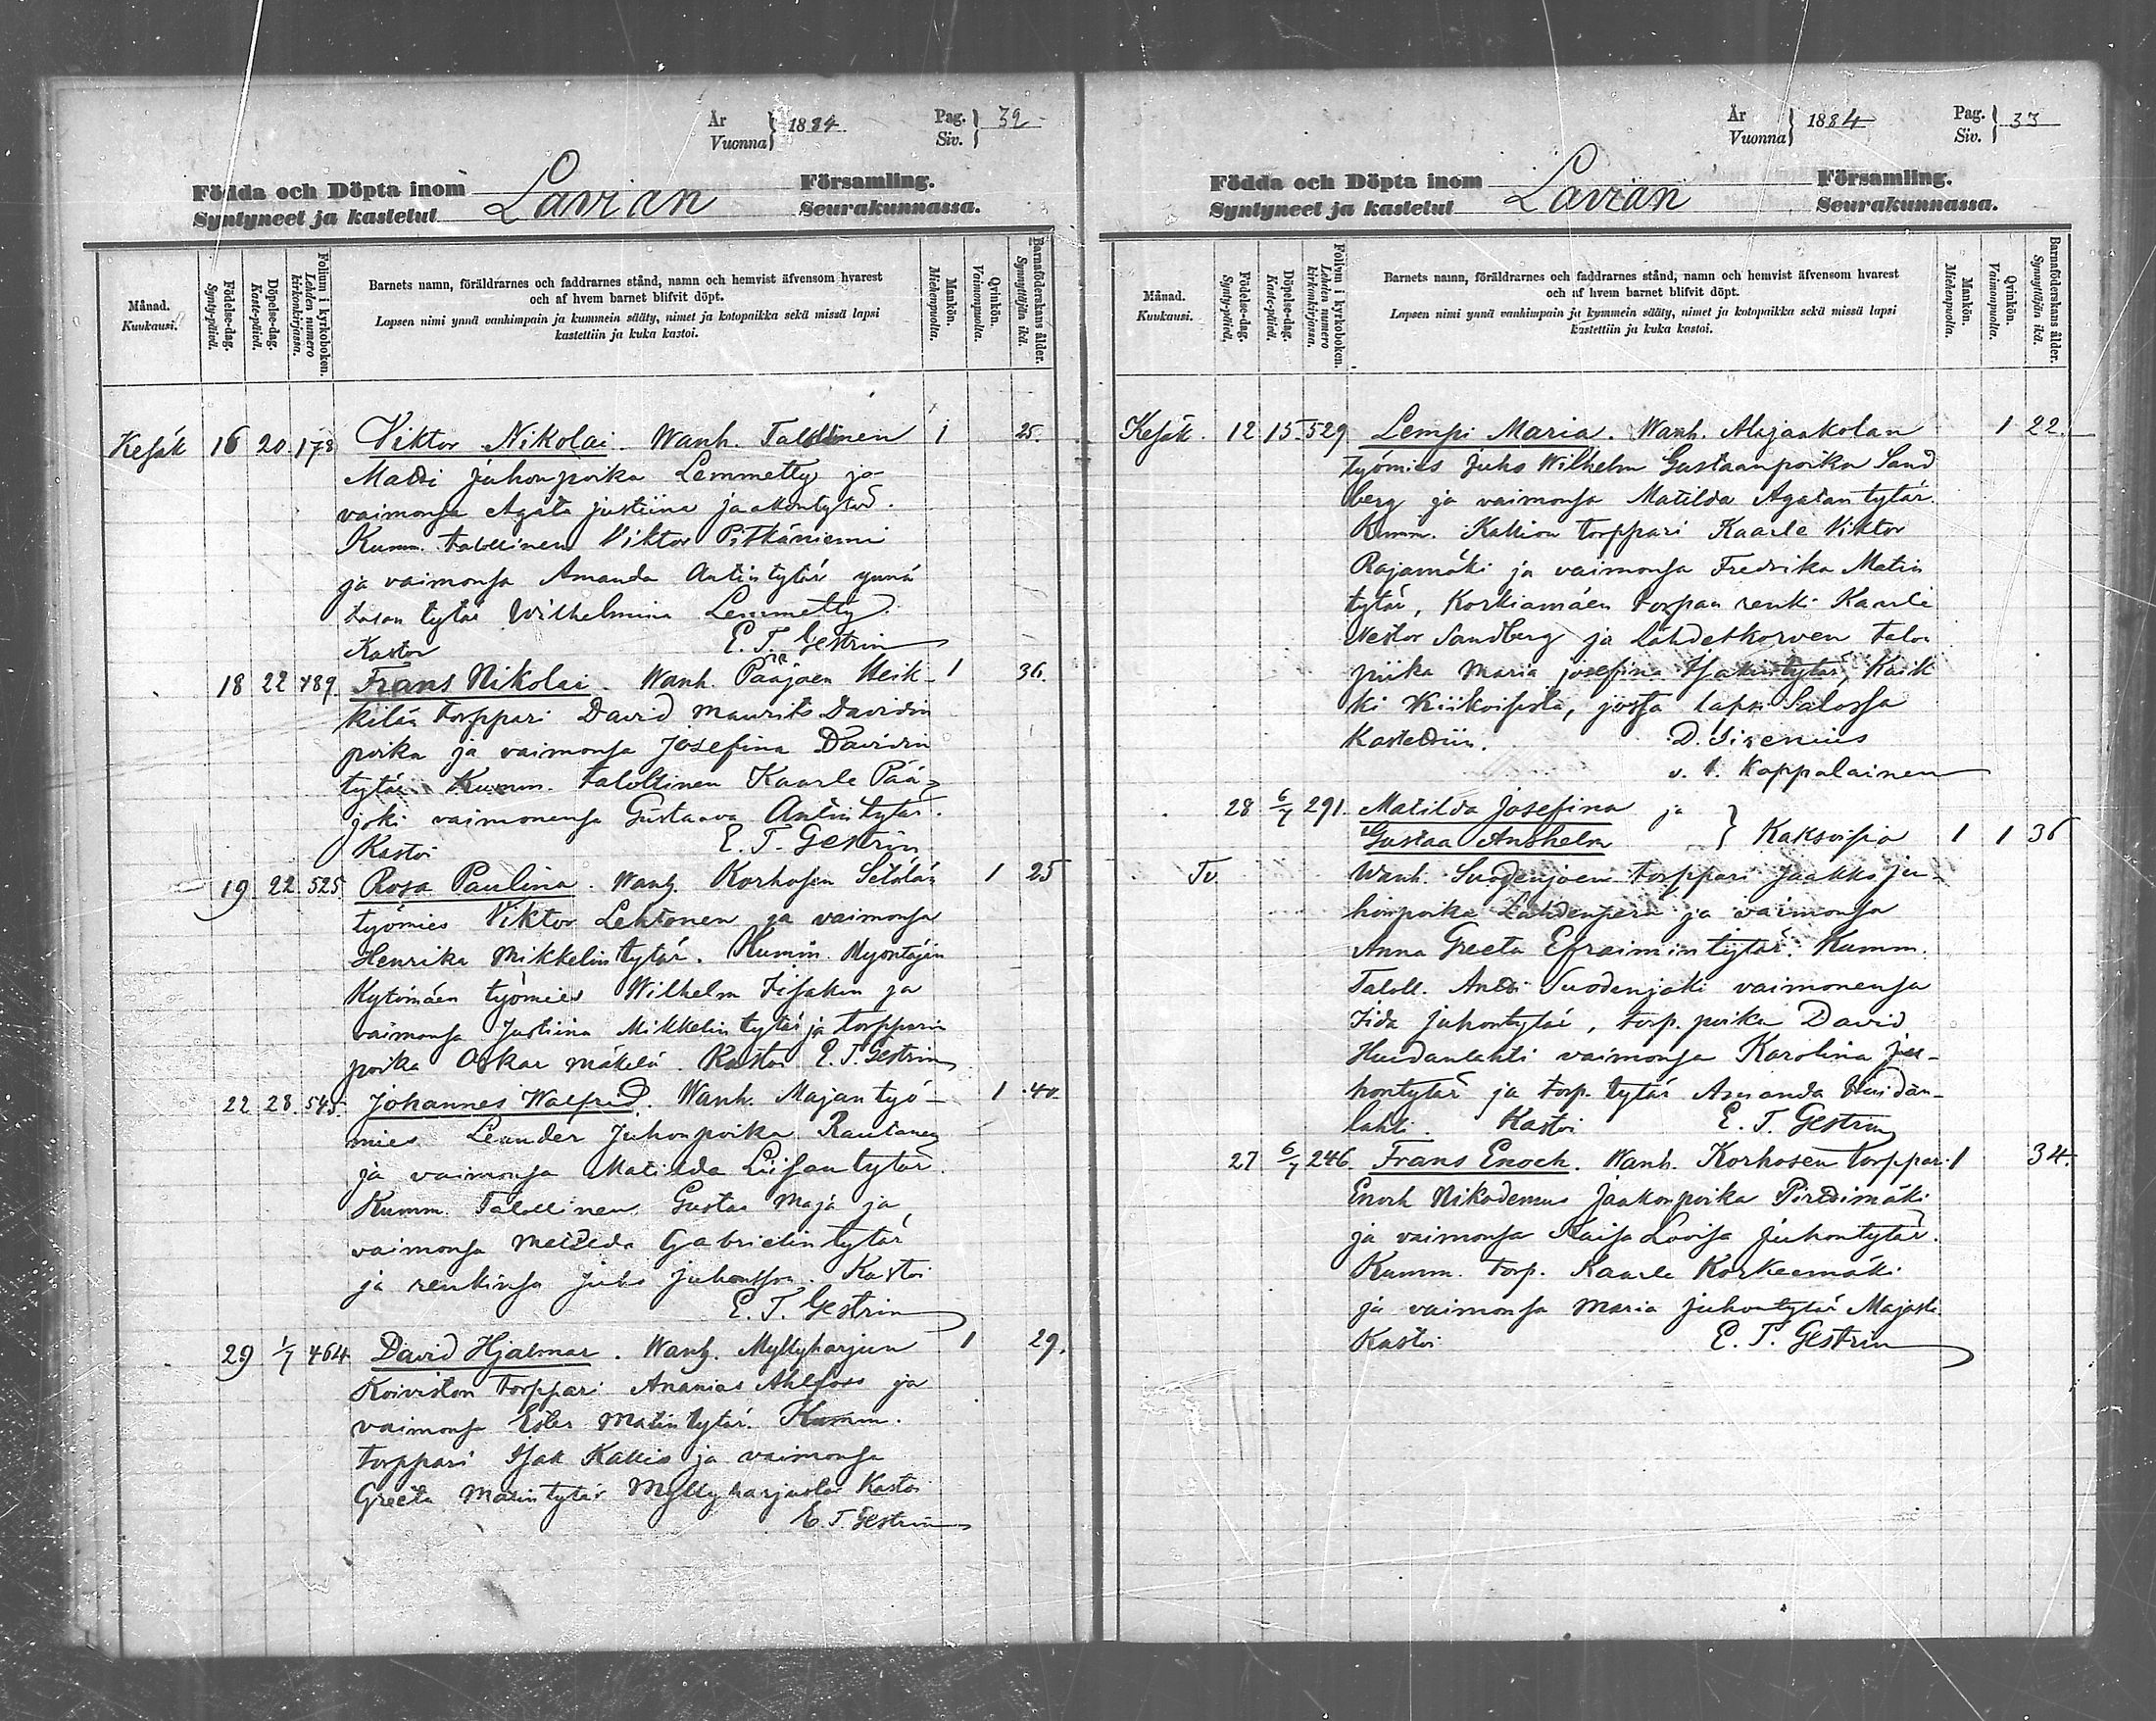 År Vuonna } 1884 Pag. Siv. } 32
Födda och Döpta inom Lavian Församling.
Syntyneet ja kastetut Seurakunnassa.
Månad. Kuukausi.
Födelse-dag. Synty-päivä.
Döpelse-dag. Kaste-päivä.
Folium i kyrkoboken. Lehden numero kirkonkirjassa.
Barnets namn, föräldrarnes och faddrarnes stånd, namn och hemvist äfvensom hvarest
och af hvem barnet blifvit döpt.
Lapsen nimi ynnä vanhimpain ja kummein sääty, nimet ja kotopaikka sekä missä lapsi
kastettiin ja kuka kastoi.
Mankön. Miehenpuolia.
Qvinkön. Vaimonpuolia.
Barnaföderskans ålder. Synnyttäjän ikä.
Kesäk 16 20 178 Viktor Nikolai. Wanh. Talollinen 1 25.
Matti Juhonpoika Lemmetty ja
vaimonsa Agata Justiina Jaakontytär.
Kumm. talollinen Viktor Pitkäniemi
ja vaimonsa Amanda Antintytär ynnä
talon tytär Wilhelmina Lemmetty.
Kastoi E. T. Gestrin
18 22 489 Frans Nikolai. Wanh. Pääjoen Heik- 1 36.
kilän torppari David Maurits Davidin
poika ja vaimonsa Josefina Davidin
tytär Kumm. talollinen Kaarle Pää-
joki vaimonensa Gustaava Antintytär.
Kastoi E. T. Gestrin
19 22 525 Rosa Paulina. Wanh. Korhosen Setälän 1 25
työmies Viktor Lehtonen ja vaimonsa
Henrika Mikkelintytär. Kumm. Myöntäjän
Kytömäen työmies Wilhelm Iisakin ja
vaimonsa Justiina Mikkelintytär ja torpparin
poika Oskar Mäkelä. Kastoi E. T. Gestrin
22 28 545 Johannes Walfred. Wanh. Majan työ- 1 40.
mies Leander Juhonpoika Rautanen
ja vaimonsa Matilda Liisantytär.
Kumm. Talollinen Gustaa Maja ja
vaimonsa Gabrielintytär
ja renkinsä Juho Juhonsson. Kastoi
E. T. Gestrin
29 1/7 464 David Hjalmar. Wanh. Myllyharjun 1 29.
Koiviston torppari Ananias Ahlfors ja
vaimonsa Ester Matintytär. Kumm.
torppari Isak Kallio ja vaimonsa
Greeta Matintytär Myllyharjusta Kastoi
E. T. Gestrin
År Vuonna } 1884 Pag. Siv. } 33
Födda och Döpta inom Lavian Församling.
Syntyneet ja kastetut Seurakunnassa.
Månad. Kuukausi.
Födelse-dag. Synty-päivä.
Döpelse-dag. Kaste-päivä.
Folium i kyrkoboken. Lehden numero kirkonkirjassa.
Barnets namn, föräldrarnes och faddrarnes stånd, namn och hemvist äfvensom hvarest
och af hvem barnet blifvit döpt.
Lapsen nimi ynnä vanhimpain ja kummein sääty, nimet ja kotopaikka sekä missä lapsi
kastettiin ja kuka kastoi.
Mankön. Miehenpuolia.
Qvinkön. Vaimonpuolia.
Barnaföderskans ålder. Synnyttäjän ikä.
Kesäk. 12 15 529 Lempi Maria. Wanh. Alajaakolan 1 22.
työmies Juho Wilhelm Gustaanpoika Sand
berg ja vaimonsa Matilda Agatantytär.
Kumm. Kallion torppari Kaarle Viktor
Rajamäki ja vaimonsa Fredrika Matin
tytär, Korkiamäen torpan renki Kaarle
Nestor Sandberg ja Lähdetkorven talon
piika Maria Josefina Isakintytär, Kaik
ki Kiikoisista, jossa lapsi Salossa
Kastettiin. D. Sirenius
v. t. Kappalainen
28 6/7 291. Matilda Josefina ja
Gustaa Anshelm } Kaksoisia 1 1 36
Tv Wanh. Suodenjoen torppari Jaakko Ju-
honpoika Lahdenperä ja vaimonsa
Anna Greeta Efraimintytär. Kumm.
Taloll. Antti Suodenjoki vaimonensa
Iida Juhontytär, torp. poika David
Huidanlahti vaimonsa Karolina Ju-
hontytär ja torp. tytär Amanda Huidan-
lahti. Kastoi E. T. Gestrin
27 6/7 246. Frans Enoch. Wanh. Korhosen torppari 1 34.
Enoch Nikodemus Jaakonpoika Pirttimäki
ja vaimonsa Kaisa Lovisa Juhontytär.
Kumm. torp. Kaarle Korkeemäki
ja vaimonsa Maria Juhontytär Majasta.
Kastoi E. T. Gestrin